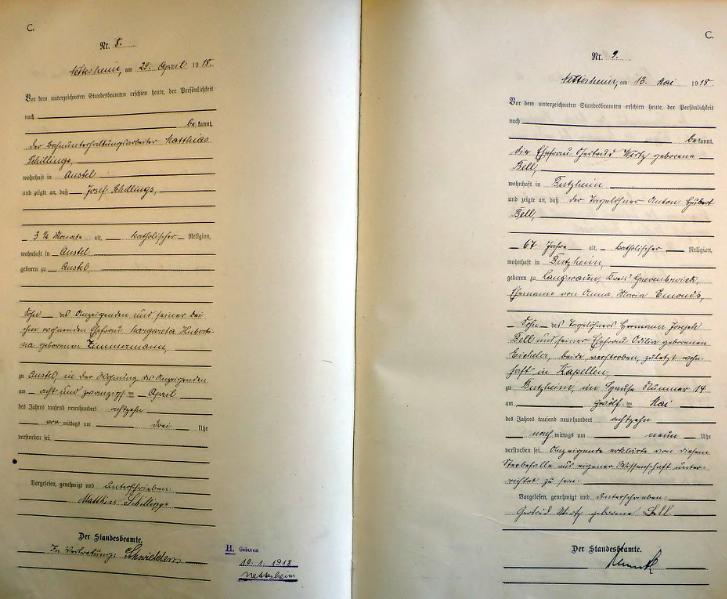 C.
Nr. 8.
Nettesheim, am 29. April 1918.
Vor dem unterzeichneten Standesbeamten erschien heute, der Persönlichkeit
nach
bekannt,
der Bahnunterhaltungsarbeiter Matthias
Schillings,
wohnhaft in Anstel
und zeigte an, daß Josef Schillings,
3 ½ Monate alt, katholischer Religion,
wohnhaft in Anstel
geboren zu Anstel
Sohn des Anzeigenden und seiner bei
ihm wohnenden Ehefrau Margareta Huberti-
na geborenen Zimmermann,
zu Anstel, in der Wohnung des Anzeigenden
am acht und zwanzigsten April
des Jahres tausend neunhundert achtzehn
vor mittags um drei Uhr
verstorben sei.
Vorgelesen, genehmigt und unterschrieben
Matthias Schillings
Der Standesbeamte.
In Vertretung:
H. Geboren
10. 1. 1918
Nettesheim
C.
Nr. 9.
Nettesheim, am 13. Mai 1918
Vor dem unterzeichneten Standesbeamten erschien heute, der Persönlichkeit
nach
bekannt,
die Ehefrau Gertrud Wirtz geborene
Bell,
wohnhaft in Butzheim
und zeigte an, daß der Tagelöhner Anton Hubert
Bell,
67 Jahre alt, katholischer Religion,
wohnhaft in Butzheim
geboren zu Langwaden, Kreis Grevenbroich,
Ehemann von Anna Maria Emonds,
Sohn des Tagelöhners Hermann Joseph
Bell und seiner Ehefrau Odilia geborenen
beide verstorben, zuletzt wohn-
haft in Kapellen,
zu Butzheim, im Hause Nummer 14
am zwölften Mai
des Jahres tausend neunhundert achtzehn
nach mittags um neun Uhr
verstorben sei. Anzeigende erklärte von diesem
Sterbefalle aus eigener Wissenschaft unter-
richtet zu sein.
Vorgelesen, genehmigt und unterschrieben
Gertrud Wirtz geborene Bell
Der Standesbeamte.